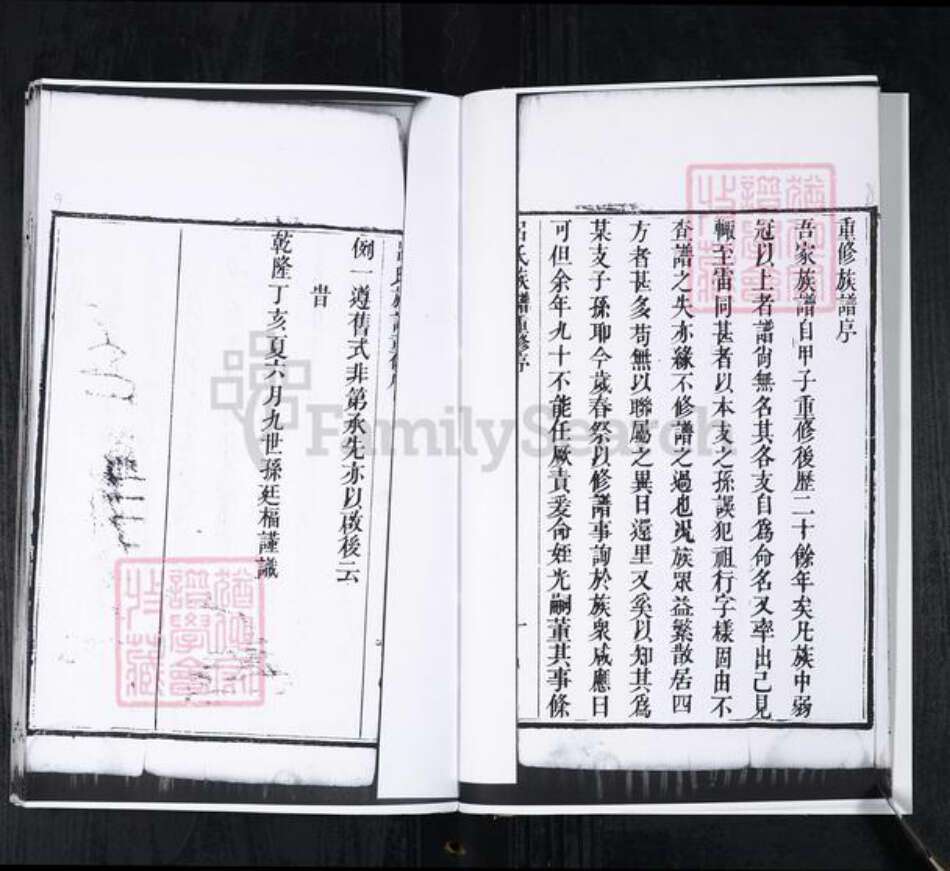 重修族譜序
吾家族譜自甲子重修後歷二十餘年矣凡族中弱
冠以上者譜尚無名其各支自為命名又率出己見
輙至雷同甚者以本支之孫誤犯祖行字樣固由不
查譜之失亦緣不修譜之過也况族眾益繁散居四
方者甚多苟無以聯屬之異日還里又奚以知其為
某支子孫耶今歲春祭以修譜事詢於族衆咸應曰
可但余年九十不能任厥責爰命姪光嗣董其事條
呂氏族譜重修序
例一遵舊式非第承先亦以啟後云
昔
乾隆丁亥夏六月九世孫廷楅謹識
FamilySearch